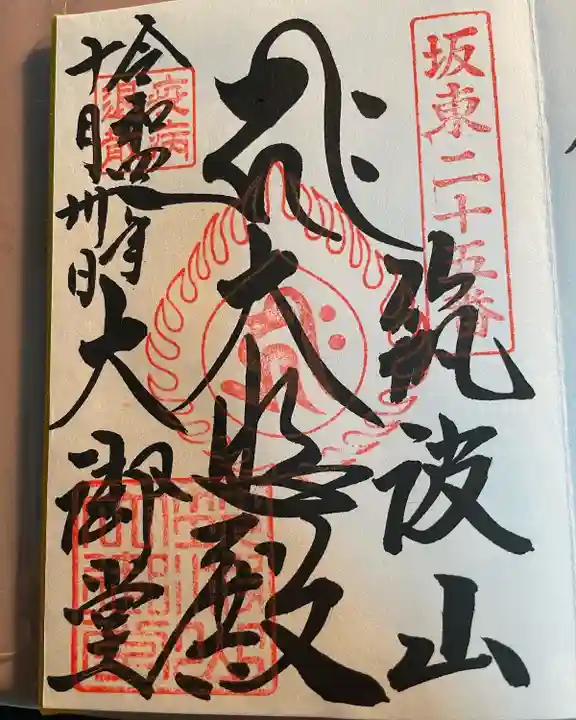 坂東二十五番
筑波山
大悲殿
疫病
退散
令和四年
十月卅日
大御堂